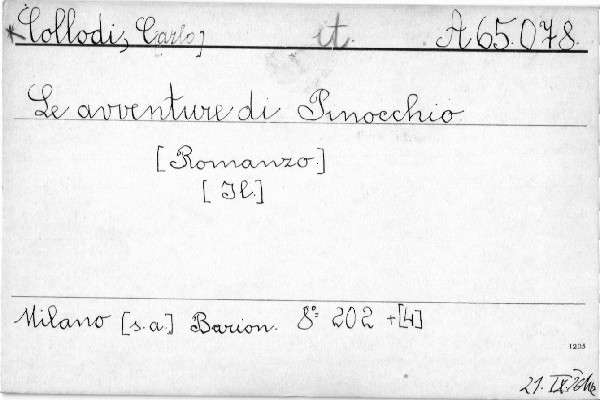 Collodi, C[arlo] it. A 65.078.
Le avventure di Pinocchio
[Romanzo.]
[Il.]
Milano [s.a.] Barion. 8° 202 +[4]
1205
21. IX.